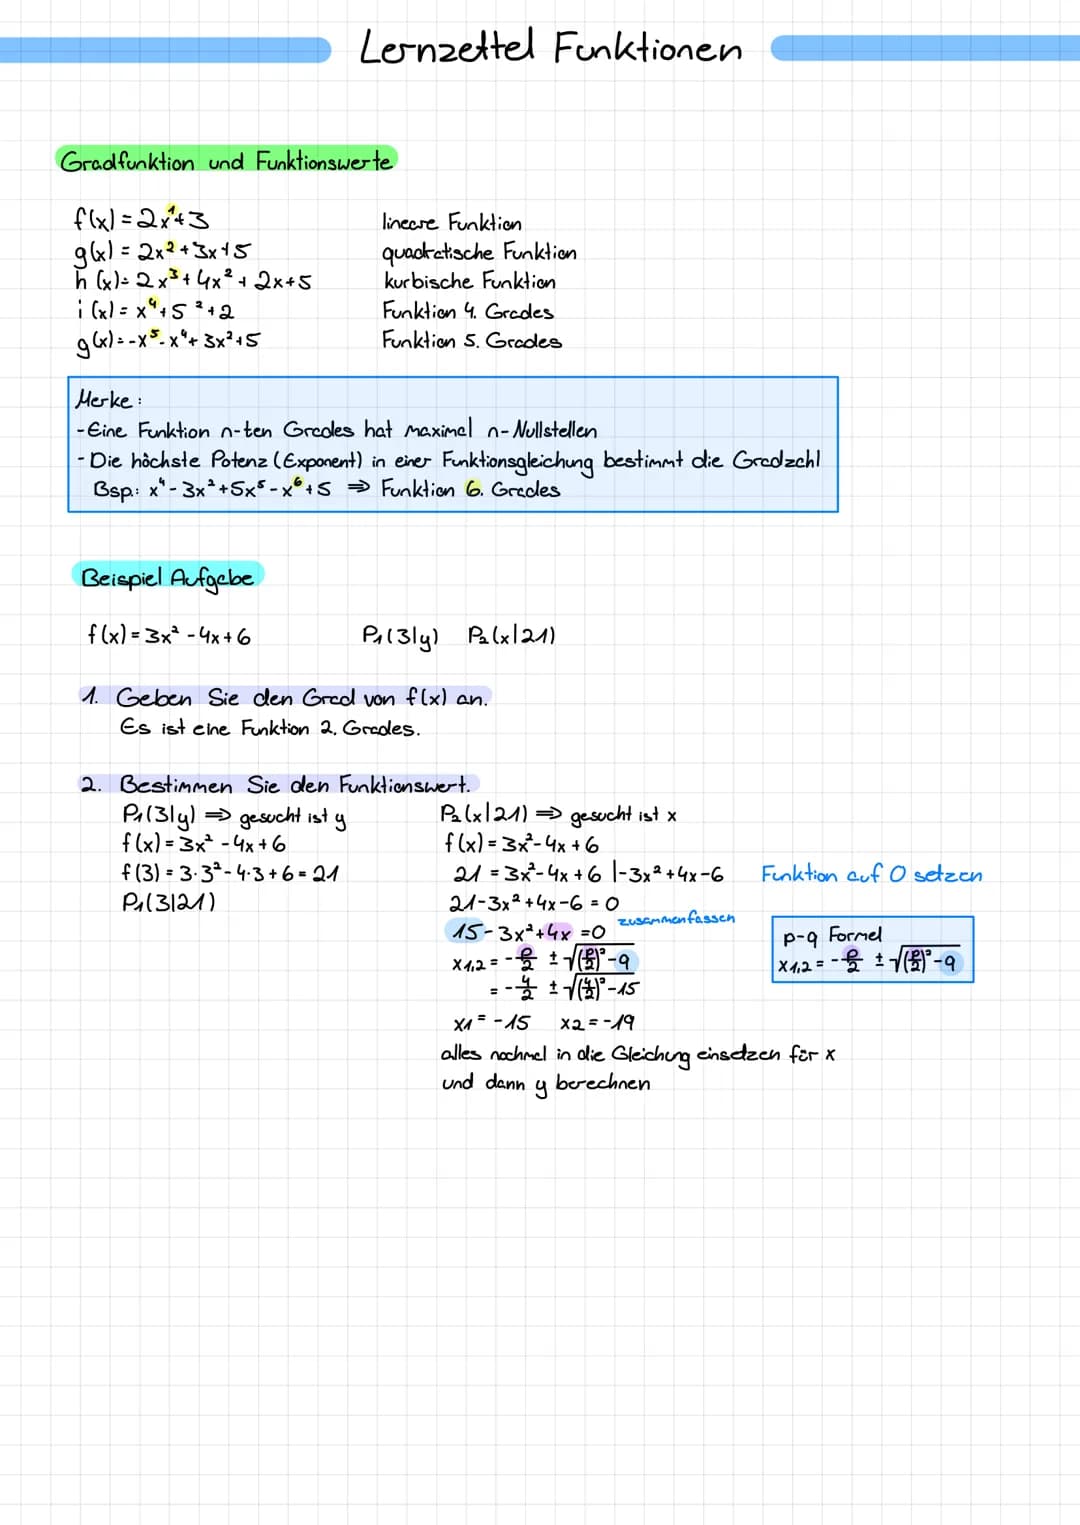 Lernzettel Funktionen
Gradfunktion und Funktionswerte
f(x) = 2x¹+3 lineare Funktion
g(x) = 2x²+3x+5 quadratische Funktion
h(x) = 2x³+4x²+2x+5 kurbische Funktion
i(x) = x⁴+5²+2 Funktion 4. Grades
g(x) = -x⁵-x⁴+3x²+5 Funktion 5. Grades
Merke:
-Eine Funktion n-ten Grades hat maximal n-Nullstellen
-Die höchste Potenz (Exponent) in einer Funktionsgleichung bestimmt die Gradzahl
Bsp.: x⁴-3x²+5x⁵-x⁶+5 ⇒ Funktion 6. Grades
Beispiel Aufgabe
f(x) = 3x²-4x+6 P₁(3|y) P₂(x|21)
1. Geben Sie den Grad von f(x) an.
Es ist eine Funktion 2. Grades.
2. Bestimmen Sie den Funktionswert.
P₁(3|y) ⇒ gesucht ist y
f(x) = 3x²-4x+6
f(3) = 3·3²-4·3+6 = 21
P₁(3|21)
P₂(x|21) ⇒ gesucht ist x
f(x) = 3x²-4x+6
21 = 3x²-4x+6 |-3x²+4x-6 Funktion auf 0 setzen
21-3x²+4x-6 = 0
15-3x²+4x = 0 zusammenfassen
x1,2 = -p/2 ± √(p/2)²-q
= -4/2 ± √(4/2)²-15
x1 = -15 x2 = -19
alles nochmal in die Gleichung einsetzen für x
und dann y berechnen
p-q Formel
x1,2 = -p/2 ± √(p/2)²-q